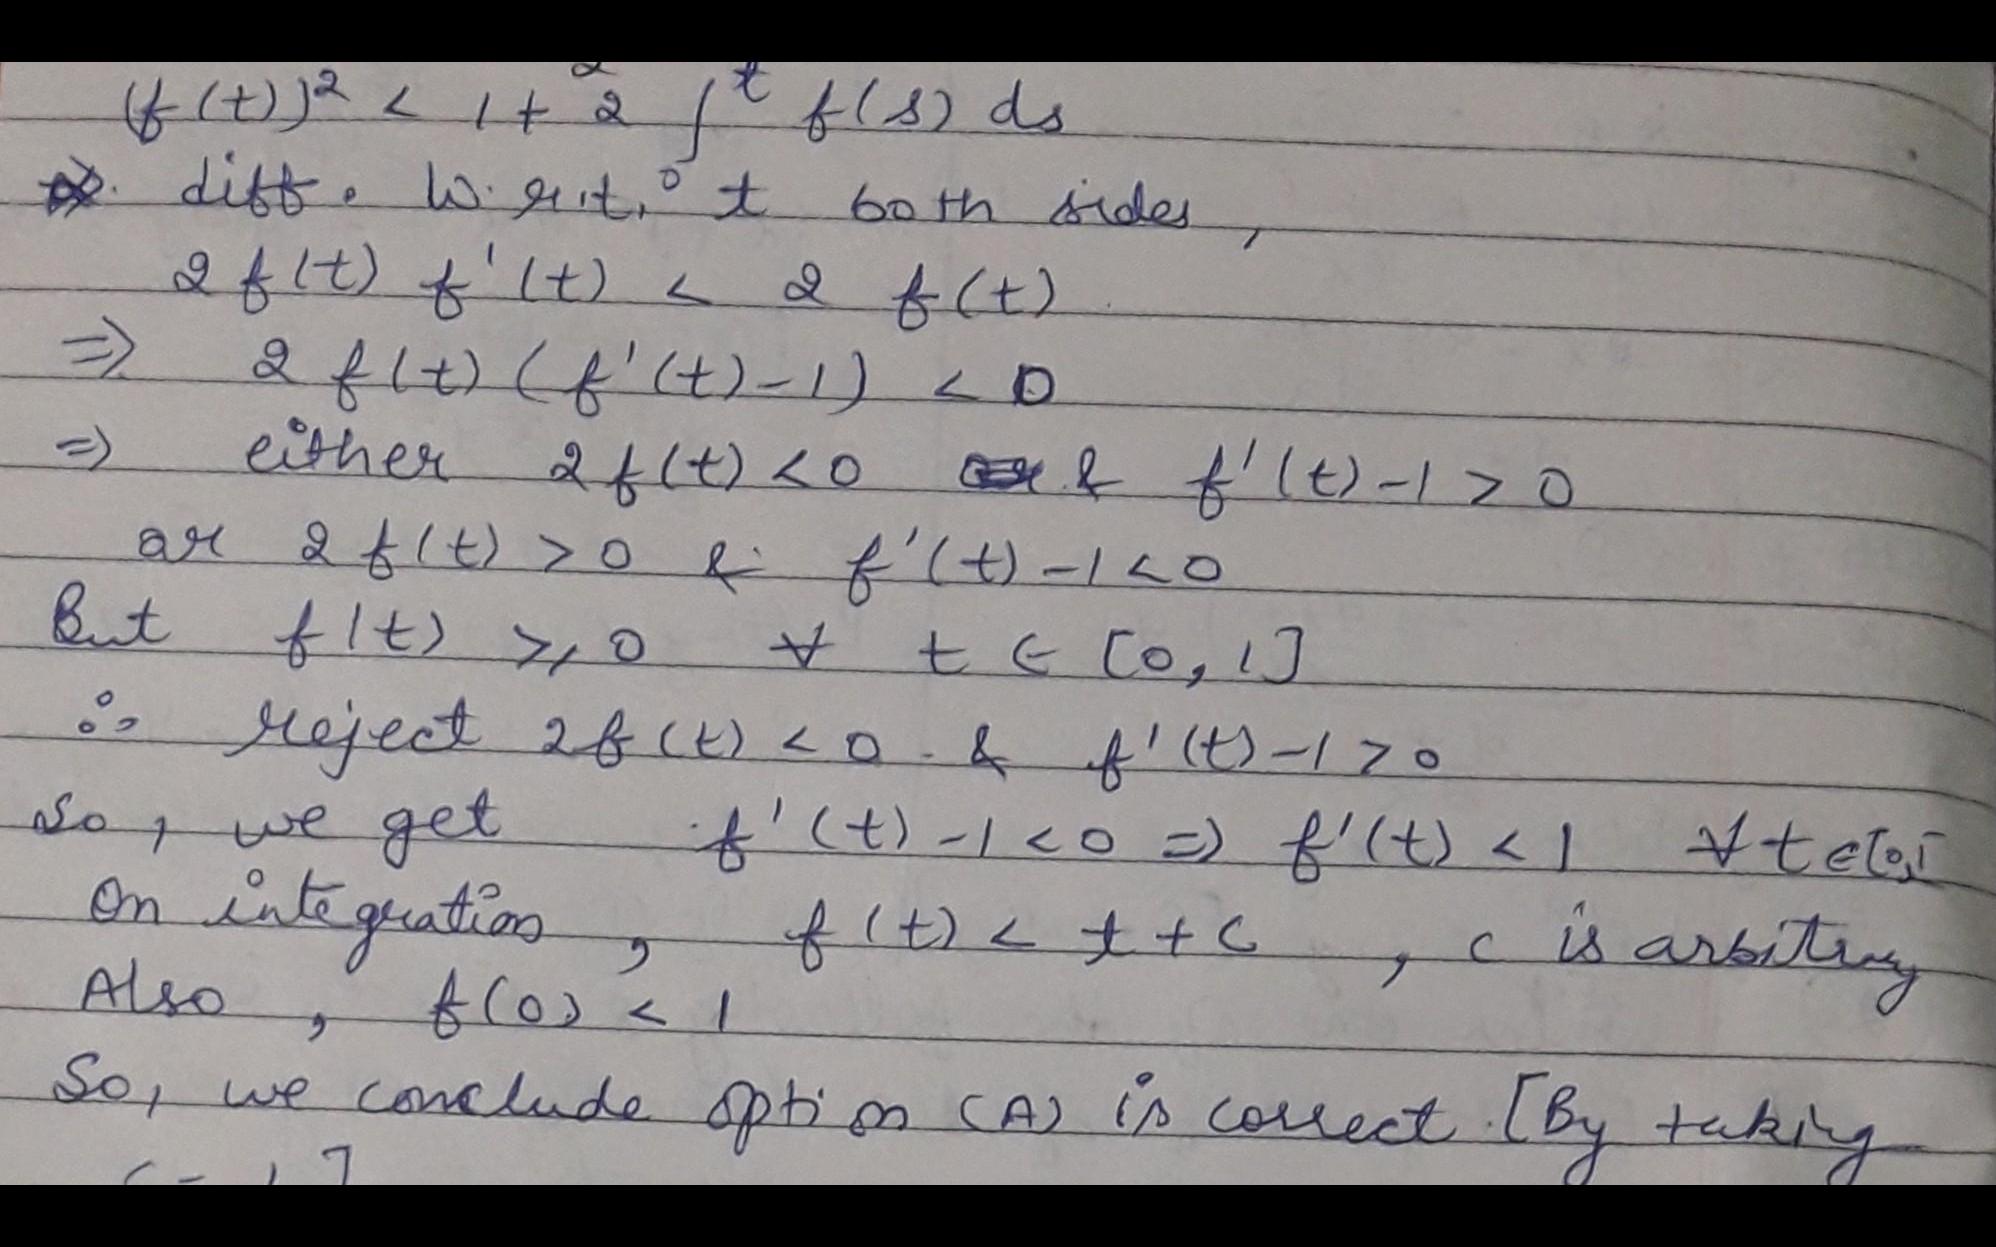 (f(t))² < 1 + 2 ∫₀ᵗ f(s) ds
diff. w.r.t. t both sides,
2 f(t) f'(t) < 2 f(t)
⇒ 2 f(t) (f'(t) - 1) < 0
⇒ either 2 f(t) < 0 & f'(t) - 1 > 0
or 2 f(t) > 0 & f'(t) - 1 < 0
But f(t) ≥ 0 ∀ t ∈ [0, 1]
∴ reject 2 f(t) < 0 & f'(t) - 1 > 0
So, we get f'(t) - 1 < 0 ⇒ f'(t) < 1 ∀ t ∈ [0,1
On integration, f(t) < t + c, c is arbitrary
Also, f(0) < 1
So, we conclude option (A) is correct. [By taking